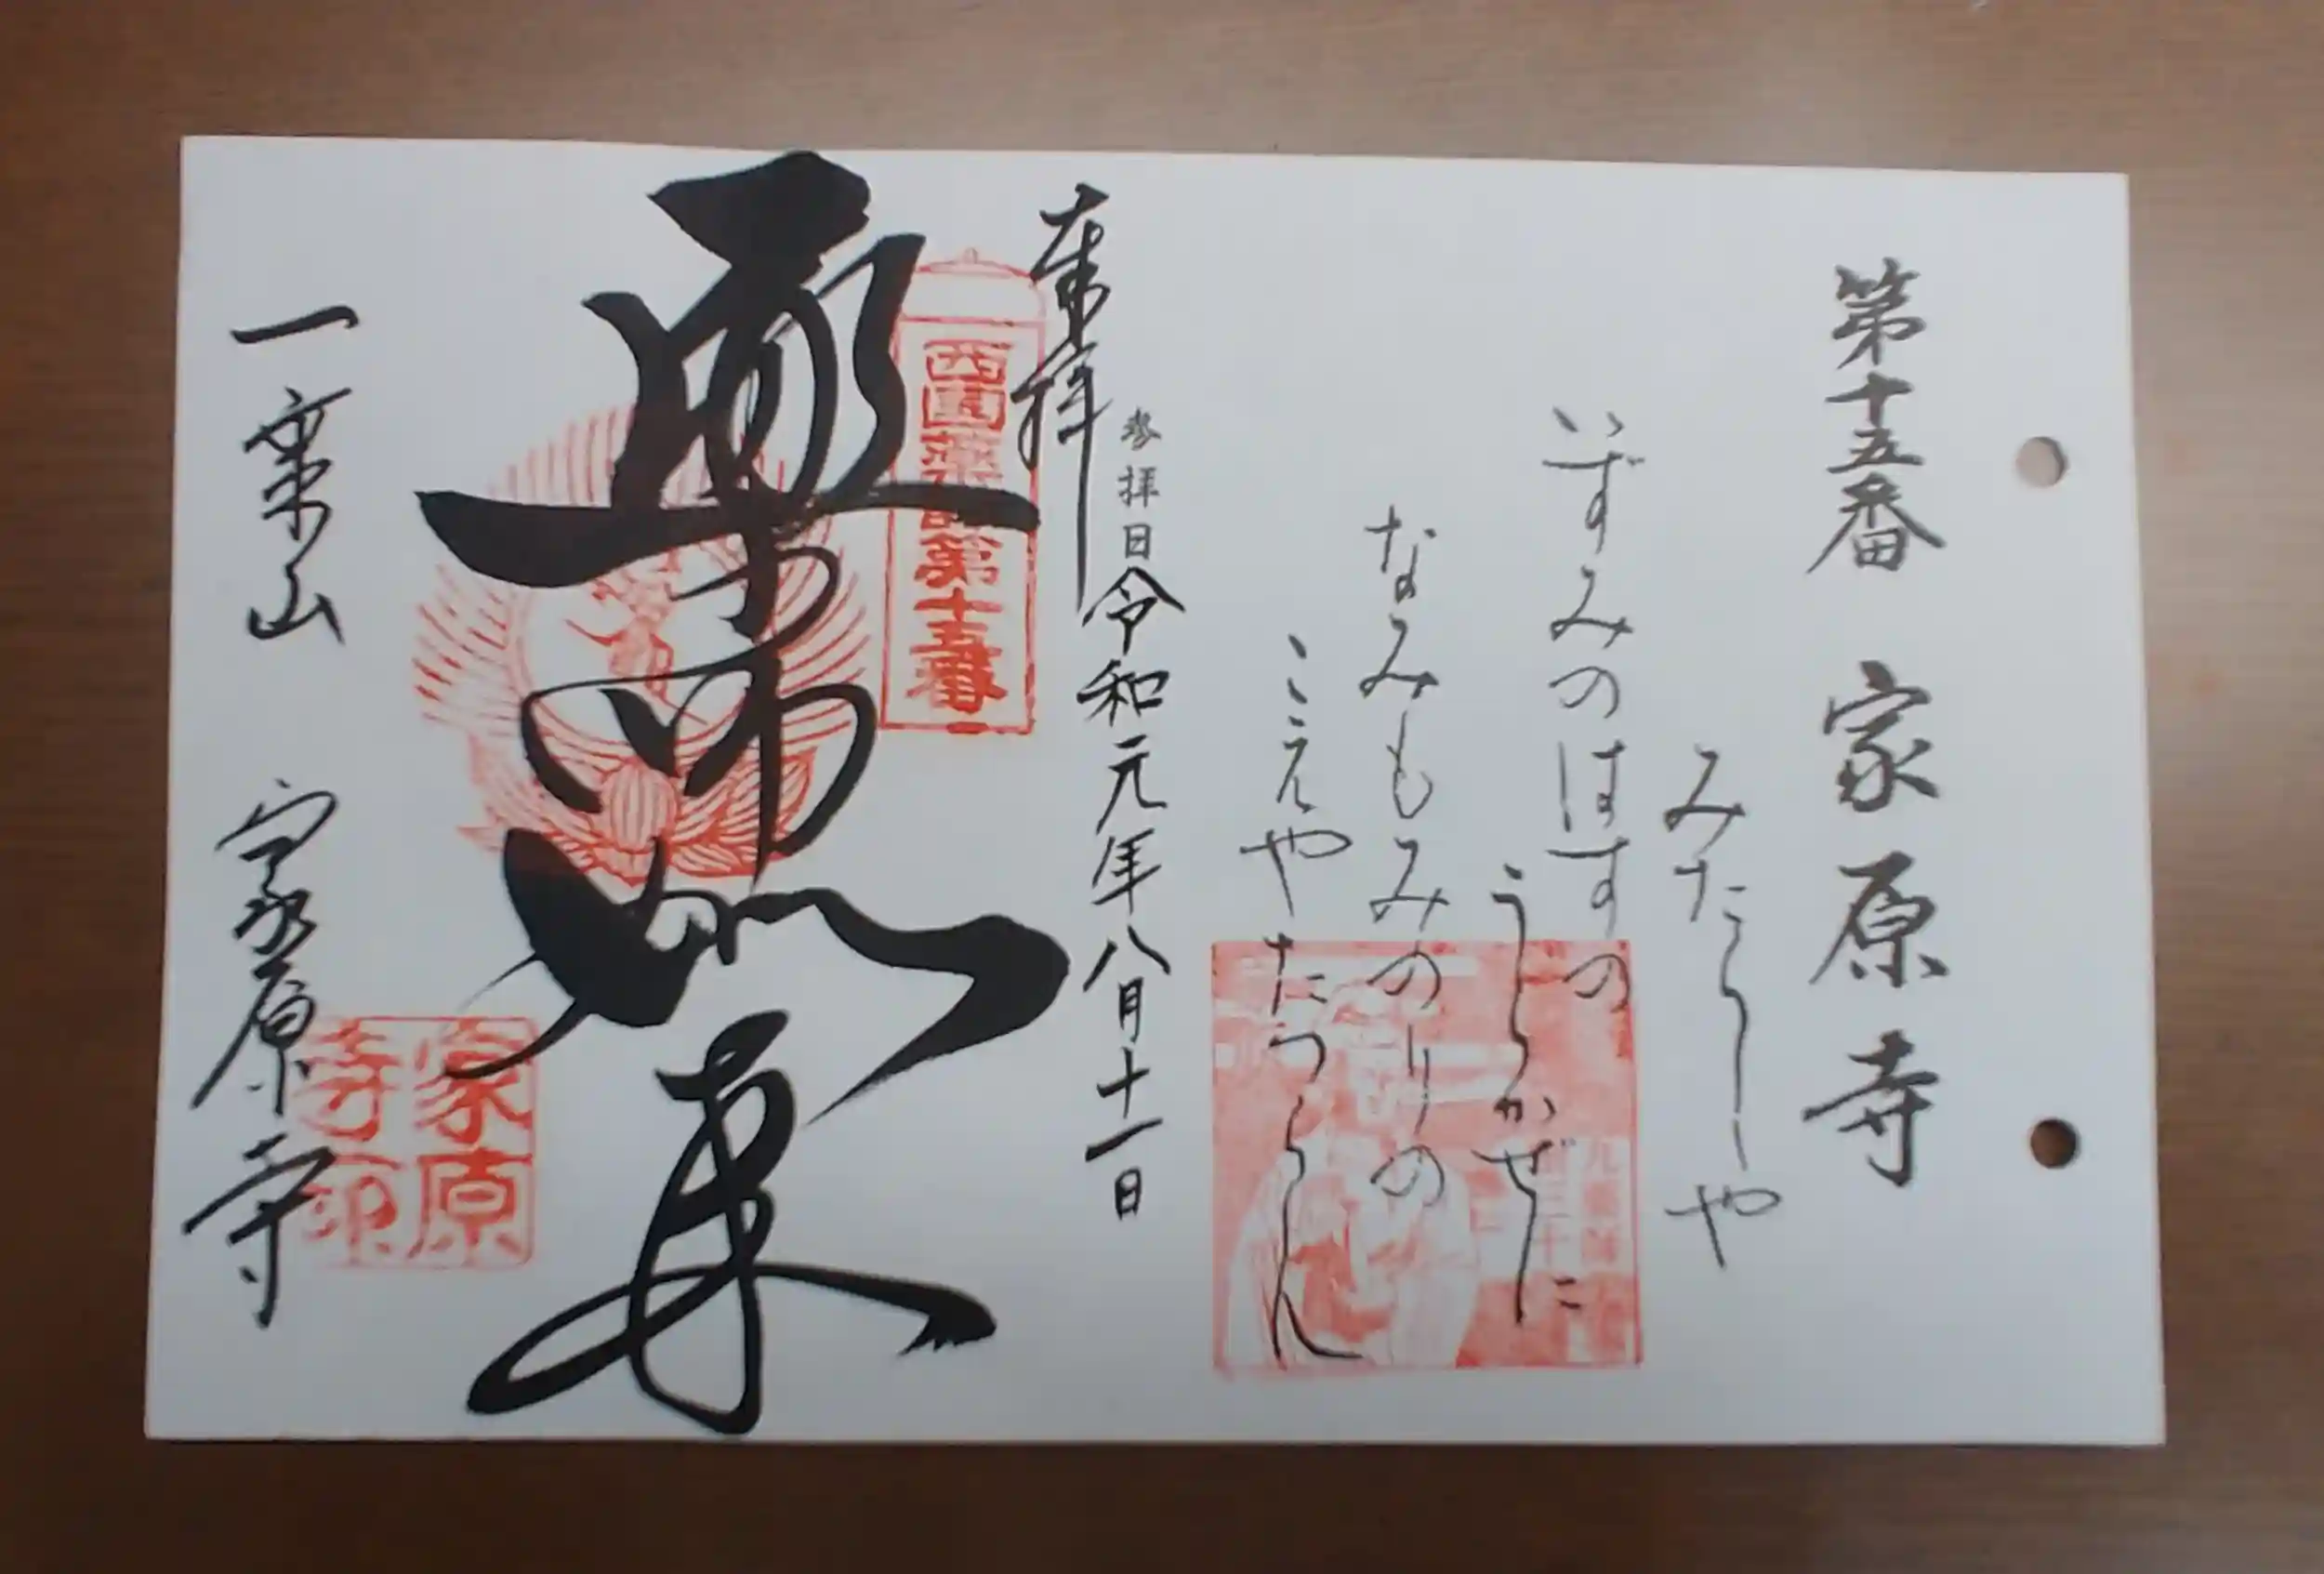 第十五番 家原寺
みたらしや
いずみのはすの
うらかぜに
なみもみのりの
こえやたつらん
参拝日令和元年八月十一日
奉拝
西国薬師第十五番
薬師如来
一乗山 家原寺
家原寺印